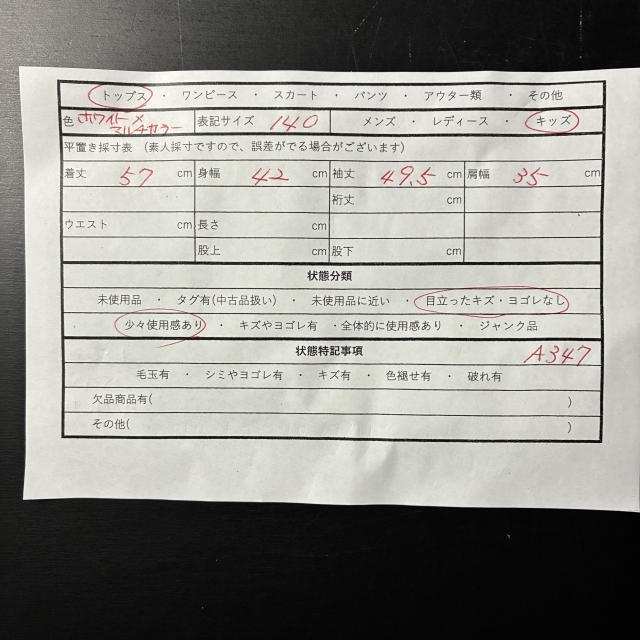 トップス ・ ワンピース ・ スカート ・ パンツ ・ アウター類 ・ その他
色 ホワイト× マルチカラー 表記サイズ 140 メンズ ・ レディース ・ キッズ
平置き採寸表 (素人採寸ですので、誤差がでる場合がございます)
着丈 57 cm 身幅 42 cm 袖丈 49.5 cm 肩幅 35 cm
裄丈 cm
ウエスト cm 長さ cm
股上 cm 股下 cm
状態分類
未使用品 ・ タグ有(中古品扱い) ・ 未使用品に近い ・ 目立ったキズ・ヨゴレなし
少々使用感あり ・ キズやヨゴレ有 ・全体的に使用感あり ・ ジャンク品
状態特記事項 A347
毛玉有 ・ シミやヨゴレ有 ・ キズ有 ・ 色褪せ有 ・ 破れ有
欠品商品有( )
その他( )